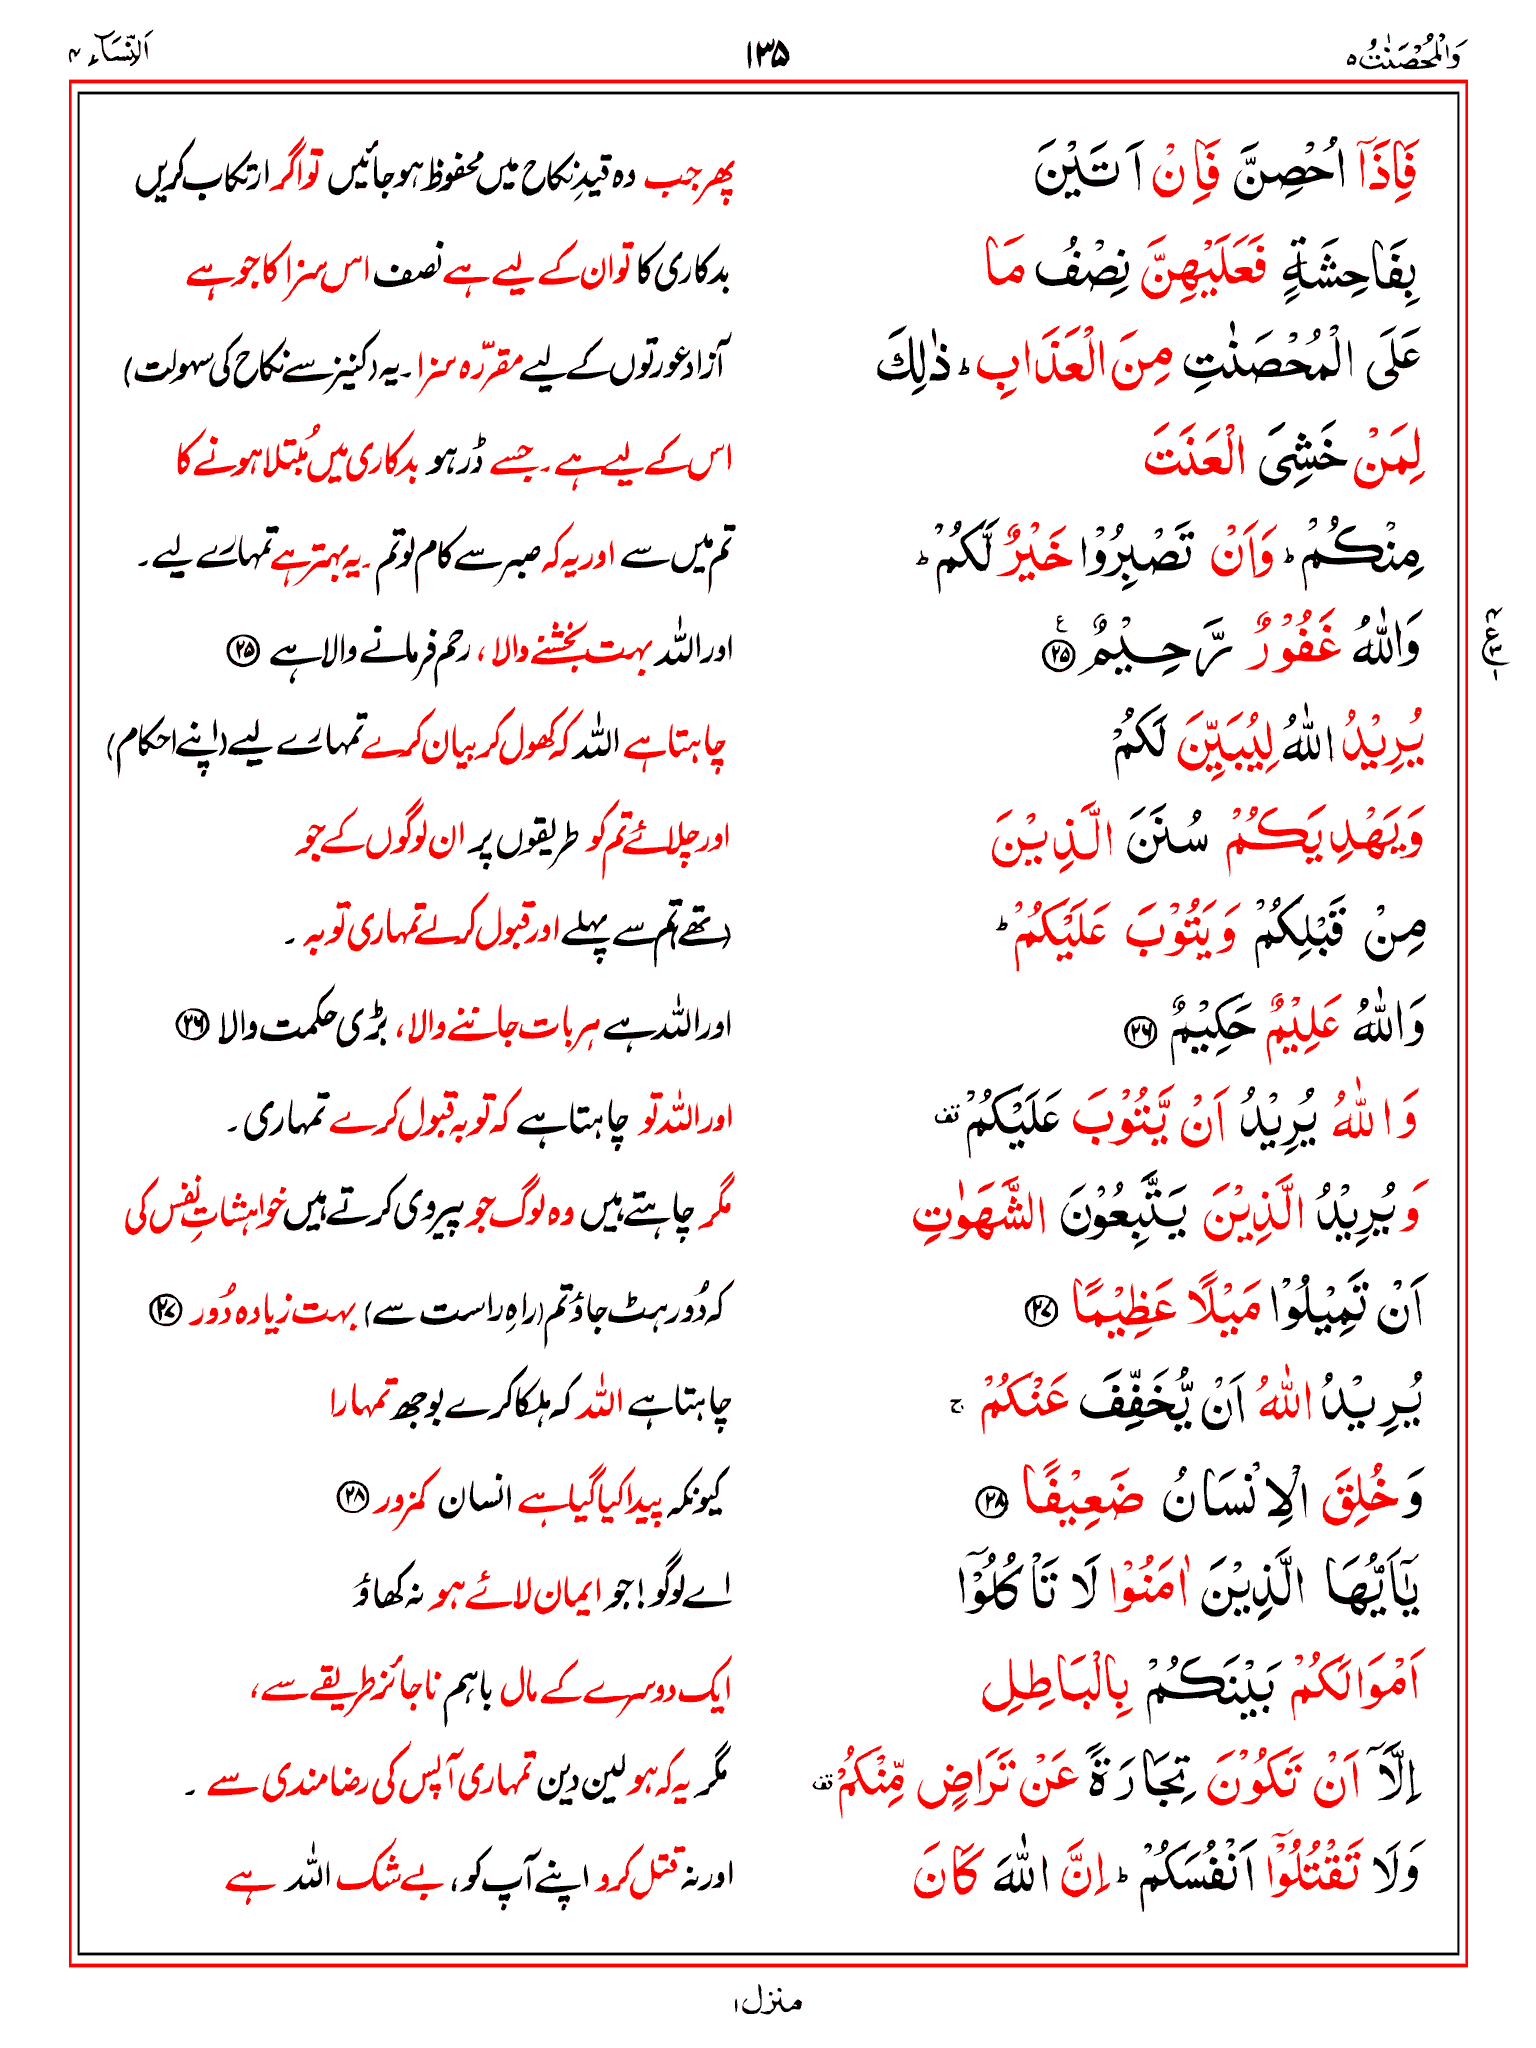 وَالْمُحْصَنٰتُ ۵ ۱۳۵ اَلنِّسَآء ۴
فَاِذَآ اُحْصِنَّ فَاِنْ اَتَيْنَ پھر جب وہ قیدِ نکاح میں محفوظ ہوجائیں تو اگر ارتکاب کریں
بِفَاحِشَةٍ فَعَلَيْهِنَّ نِصْفُ مَا بدکاری کا تو ان کے لیے ہے نصف اس سزا کا جو ہے
عَلَى الْمُحْصَنٰتِ مِنَ الْعَذَابِ ؕ ذٰلِكَ آزاد عورتوں کے لیے مقرّرہ سزا۔ یہ (کنیز سے نکاح کی سہولت)
لِمَنْ خَشِىَ الْعَنَتَ اس کے لیے ہے۔ جسے ڈر ہو بدکاری میں مُبتلا ہونے کا
مِنْكُمْ ؕ وَاَنْ تَصْبِرُوْا خَيْرٌ لَّكُمْ ؕ تم میں سے اور یہ کہ صبر سے کام لو تم۔ یہ بہتر ہے تمہارے لیے۔
وَاللّٰهُ غَفُوْرٌ رَّحِيْمٌ ۲۵ ع اور اللّٰہ بہت بخشنے والا، رحم فرمانے والا ہے ۲۵
۴ ع ۳ ۱
يُرِيْدُ اللّٰهُ لِيُبَيِّنَ لَكُمْ چاہتا ہے اللّٰہ کہ کھول کر بیان کرے تمہارے لیے (اپنے احکام)
وَيَهْدِيَكُمْ سُنَنَ الَّذِيْنَ اور چلائے تم کو طریقوں پر ان لوگوں کے جو
مِنْ قَبْلِكُمْ وَيَتُوْبَ عَلَيْكُمْ ؕ (تھے تم سے پہلے اور قبول کرلے تمہاری توبہ۔
وَاللّٰهُ عَلِيْمٌ حَكِيْمٌ ۲۶ اور اللّٰہ ہے ہر بات جاننے والا، بڑی حکمت والا ۲۶
وَاللّٰهُ يُرِيْدُ اَنْ يَّتُوْبَ عَلَيْكُمْ قف اور اللّٰہ تو چاہتا ہے کہ توبہ قبول کرے تمہاری۔
وَيُرِيْدُ الَّذِيْنَ يَتَّبِعُوْنَ الشَّهَوٰتِ مگر چاہتے ہیں وہ لوگ جو پیروی کرتے ہیں خواہشاتِ نفس کی
اَنْ تَمِيْلُوْا مَيْلًا عَظِيْمًا ۲۷ کہ دُور ہٹ جاؤ تم (راہِ راست سے) بہت زیادہ دُور ۲۷
يُرِيْدُ اللّٰهُ اَنْ يُّخَفِّفَ عَنْكُمْ ۚ چاہتا ہے اللّٰہ کہ ہلکا کرے بوجھ تمہارا
وَخُلِقَ الْاِنْسَانُ ضَعِيْفًا ۲۸ کیونکہ پیدا کیا گیا ہے انسان کمزور ۲۸
يٰٓاَيُّهَا الَّذِيْنَ اٰمَنُوْا لَا تَاْكُلُوْٓا اے لوگو! جو ایمان لائے ہو نہ کھاؤ
اَمْوَالَكُمْ بَيْنَكُمْ بِالْبَاطِلِ ایک دوسرے کے مال باہم ناجائز طریقے سے،
اِلَّآ اَنْ تَكُوْنَ تِجَارَةً عَنْ تَرَاضٍ مِّنْكُمْ قف مگر یہ کہ ہو لین دین تمہاری آپس کی رضامندی سے۔
وَلَا تَقْتُلُوْٓا اَنْفُسَكُمْ ؕ اِنَّ اللّٰهَ كَانَ اور نہ قتل کرو اپنے آپ کو، بے شک اللّٰہ ہے
منزل ۱